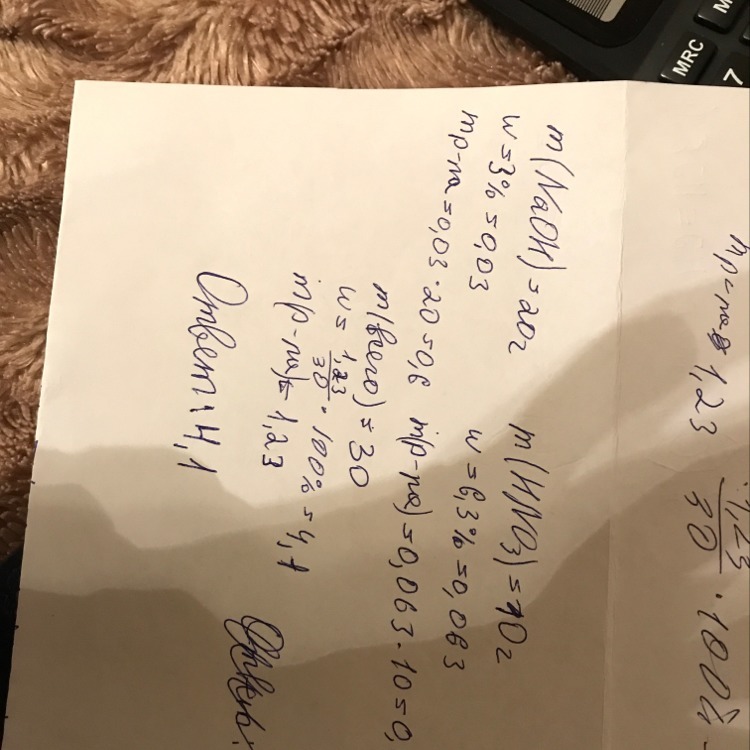 mр-на = 1,23
1,23
30
· 100%
m(NaOH) = 20г
w = 3% = 0,03
mр-на = 0,03 · 20 = 0,6
m(HNO3) = 10г
w = 6,3% = 0,063
m(р-на) = 0,063 · 10 = 0,
m(всего) = 30
w = 1,23/30 · 100% = 4,1
m(р-на) = 1,23
Ответ: 4,1
MRC
M
7